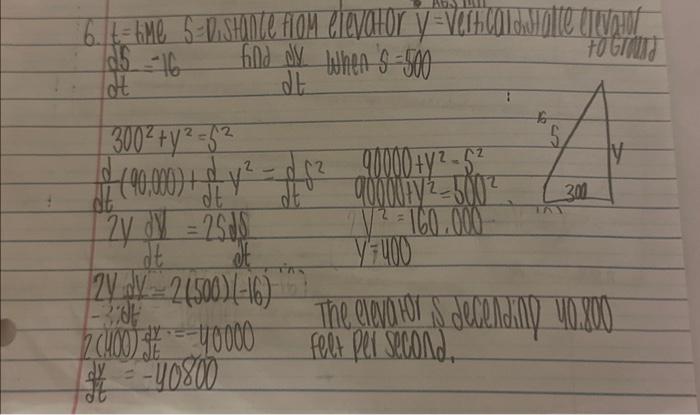 6. t=time S=Distance from elevator y=vertical distance elevator to Ground
dS/dt =-16 find dy/dt when s=500
300² + y² = S²
d/dt (90,000) + d/dt y² = d/dt S²
2y dy/dt = 2S dS/dt
2y dy/dt = 2(500)(-16)
2(400) dy/dt = -40000
dy/dt = -40800
90000+y²=S²
90000+y²=500²
y²=160,000
y=400
The elevator is decending 40,800
feet per second.
S
y
300